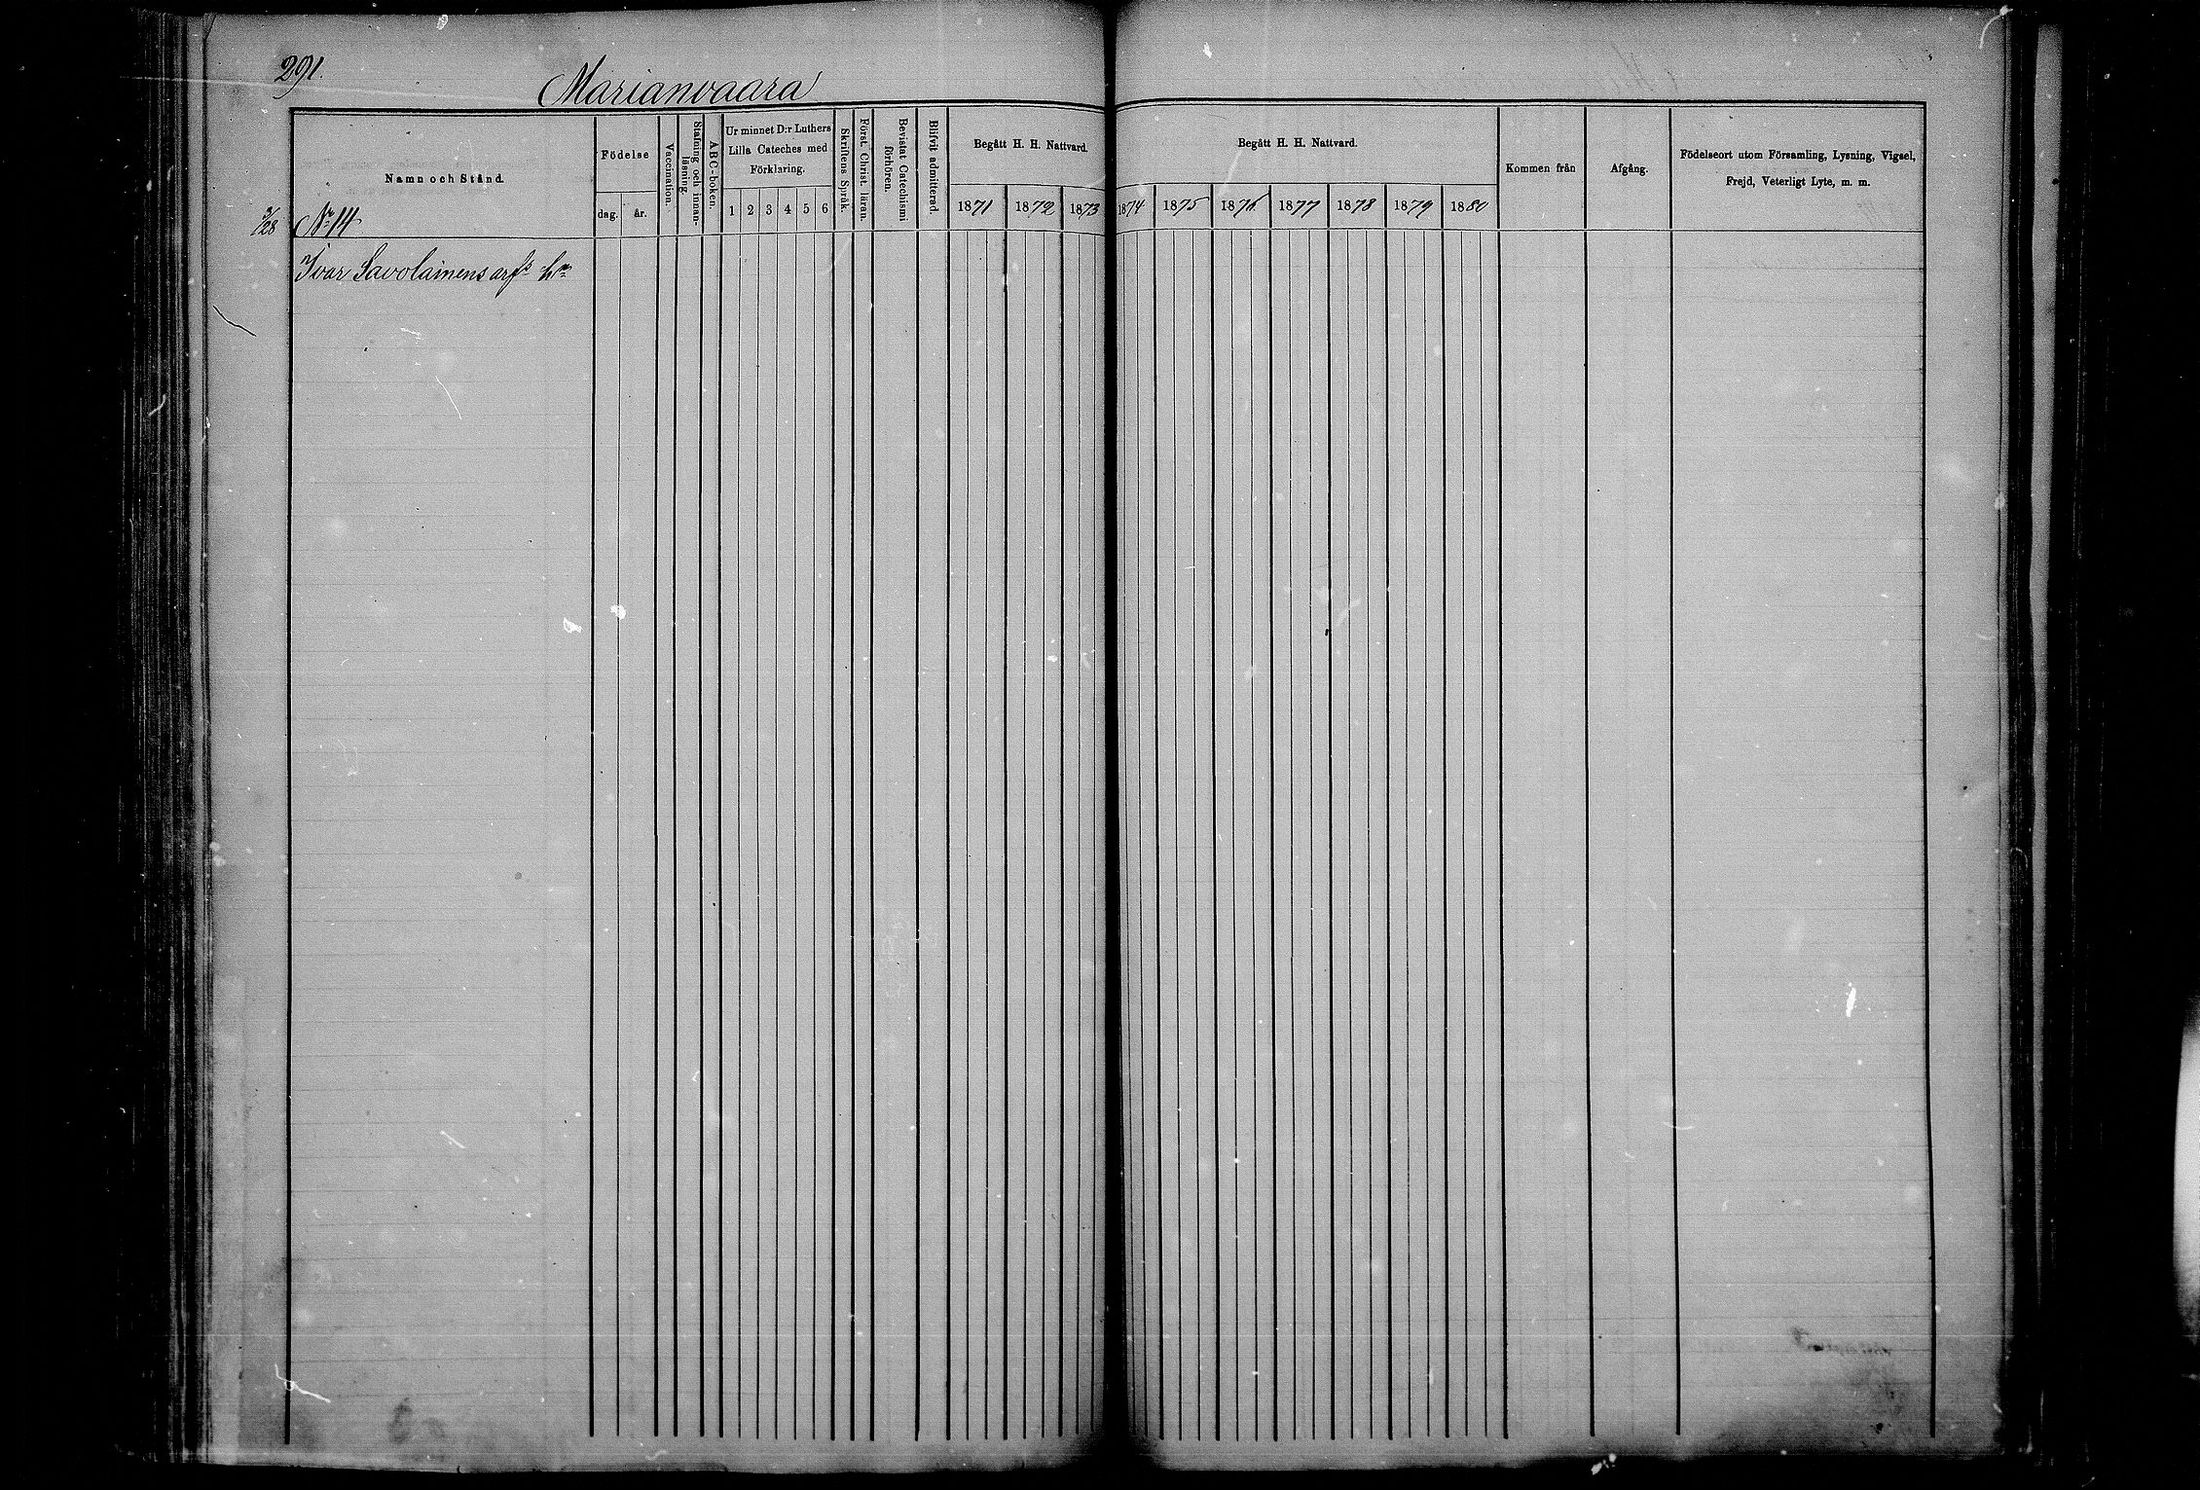 291.
Marianvaara
Namn och Stånd.
Födelse
dag.
år.
Vaccination.
Stafning och innan-
läsning.
ABC-boken.
Ur minnet D:r Luthers
Lilla Cateches med
Förklaring.
1 2 3 4 5 6
Skriftens Språk.
Först. Christ. läran.
Bevistat Catechismi
förhören.
Blifvit admitterad.
Begått H. H. Nattvard.
1871 1872 1873
Begått H. H. Nattvard.
1874 1875 1876 1877 1878 1879 1880
Kommen från
Afgång.
Födelseort utom Församling, Lysning, Vigsel,
Frejd, Veterligt Lyte, m. m.
No 14
Ivar Savolainens